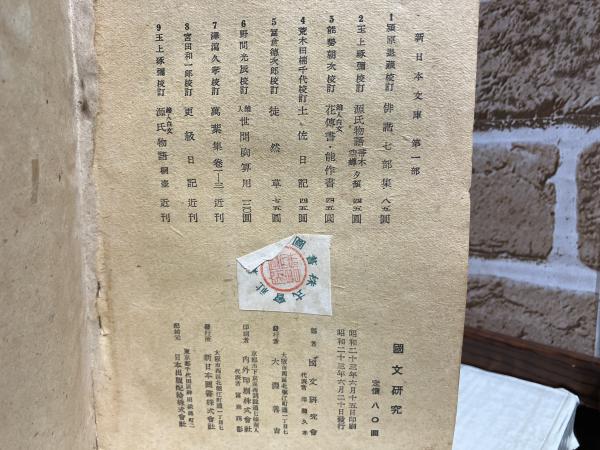 新日本文庫 第一部
1 潁原退藏校訂 俳諧七部集 八五圓
2 玉上琢彌校訂 源氏物語 帚木 空蟬 夕顏 四五圓
3 能勢朝次校訂 花傳書・能作書 四五圓
4 荒木田楠千代校訂 土佐日記 四五圓
5 冨倉德次郎校訂 徒然草 七五圓
6 野間光辰校訂 世間胸算用 一二〇圓
7 澤瀉久孝校訂 萬葉集 卷一—三 近刊
8 宮田和一郎校訂 更級日記 近刊
9 玉上琢彌校訂 源氏物語 桐壺 近刊
國文研究
定價 八〇圓
昭和二十三年六月十五日印刷
昭和二十三年六月二十日發行
著者 國文研究會
代表者 澤瀉久孝
大阪市西區北堀江町通一丁目七
發行者 大淵善吉
印刷者 內外印刷株式會社
大阪市西區北堀江町通一丁目七
發行所 新日本圖書株式會社
東京都千代田區神田淡路町二
配給元 日本出版配給株式會社